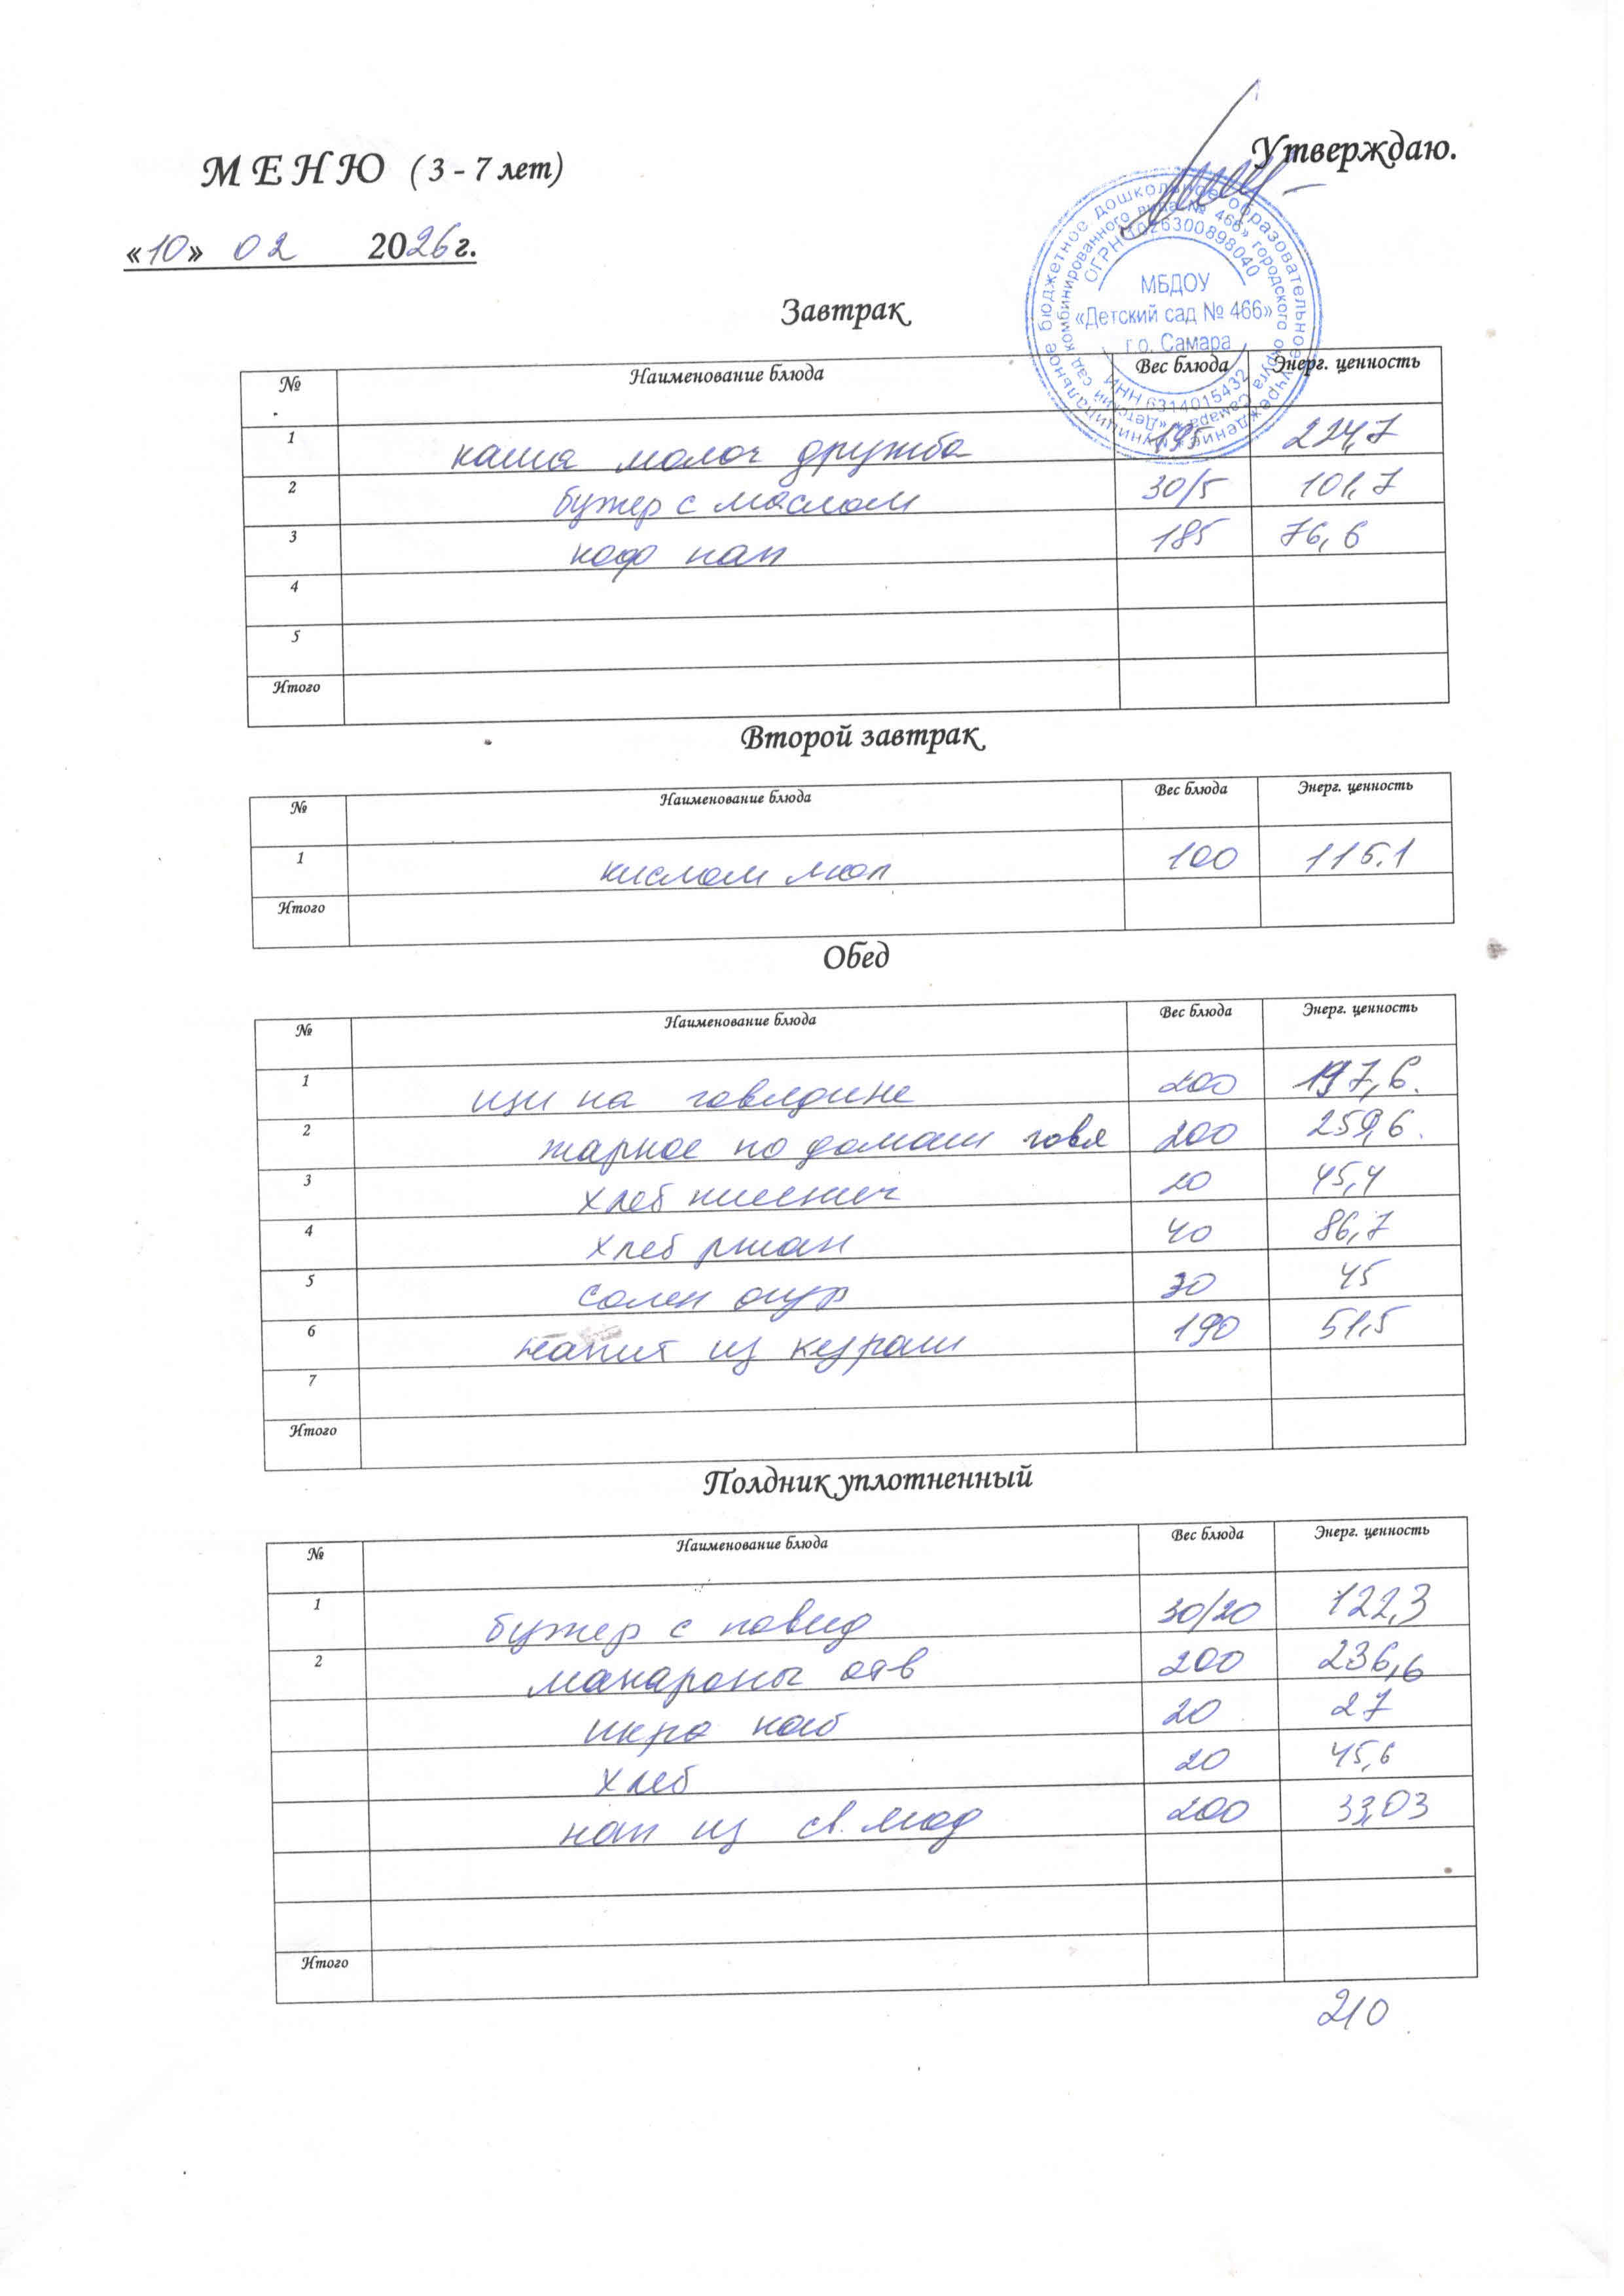 МЕНЮ (3 - 7 лет)
Утверждаю.
«10» 02 2026 г.
муниципальное бюджетное дошкольное образовательное учреждение
«Детский сад комбинированного вида № 466» городского округа Самара
ОГРН 1026300898040
МБДОУ
«Детский сад № 466»
г.о. Самара
ИНН 6314015432
Завтрак
№ Наименование блюда Вес блюда Энерг. ценность
1 каша молоч дружба 195 224,7
2 бутер с маслом 30/5 101,7
3 коф нап 185 76,6
4
5
Итого
Второй завтрак
№ Наименование блюда Вес блюда Энерг. ценность
1 кислом мол 100 115.1
Итого
Обед
№ Наименование блюда Вес блюда Энерг. ценность
1 щи на говядине 200 197,6.
2 жаркое по домаш говя 200 259,6.
3 хлеб пшенич 20 45,4
4 хлеб ржан 40 86,7
5 солен огур 30 45
6 напит из кураги 190 51,5
7
Итого
Полдник уплотненный
№ Наименование блюда Вес блюда Энерг. ценность
1 бутер с повид 30/20 122,3
2 макароны отв 200 236,6
икра каб 20 27
хлеб 20 45,6
нап из св. 200 33,03
Итого
210